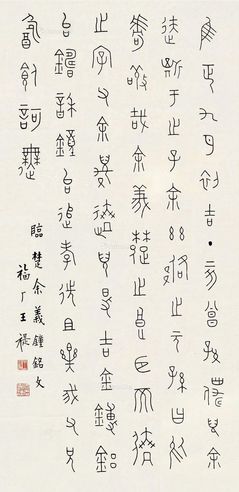 隹正九月初吉丁亥曾孫僕兒余
达斯于之子余兹佫之元孫曰於
虖敬哉余義楚之良臣而逨
之字父余贎逨兒得吉金鎛鋁
台鑄訴鐘台追孝先且樂我父兄
飲飤訶舞
臨楚余義鐘銘文
福厂王禔